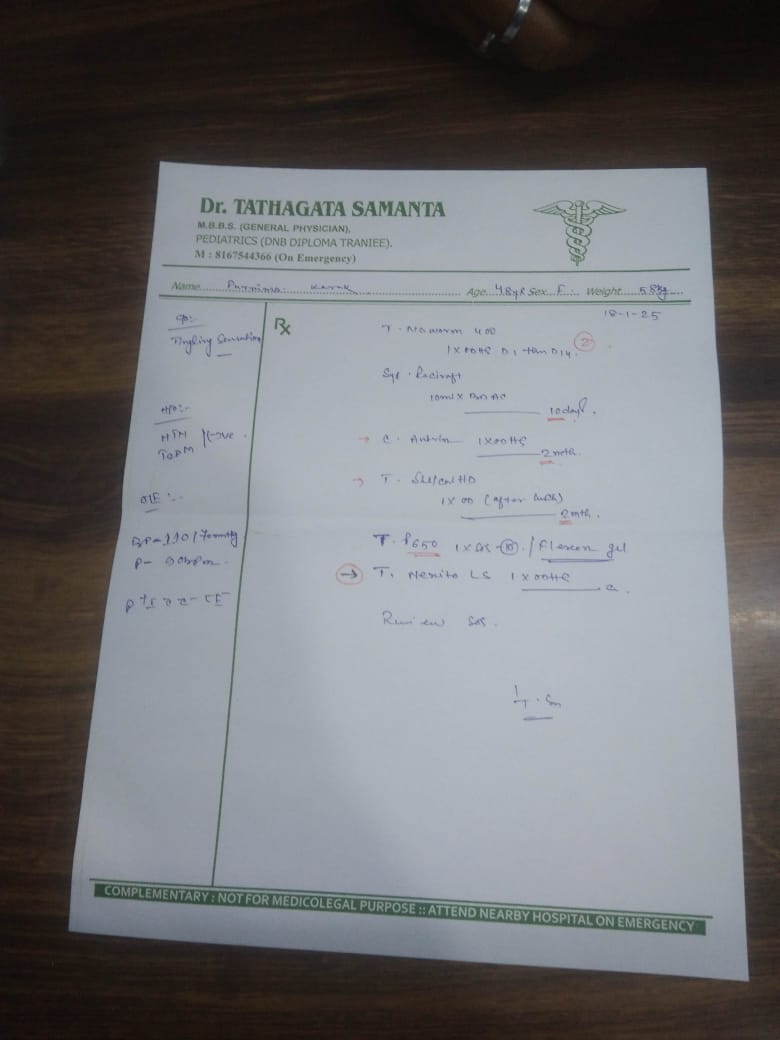 Dr. TATHAGATA SAMANTA
M.B.B.S. (GENERAL PHYSICIAN),
PEDIATRICS (DNB DIPLOMA TRANIEE).
M : 8167544366 (On Emergency)
Name Purnima Age 48yr Sex F Weight 58kg
18-1-25
Rx
C/o:-
Tingling Sensation
H/O:-
HTN
T2DM -ve
O/E :-
BP = 110/70mmHg
P-
T. 400
1X00HS D1 then D14. 2
Syp.
10ml X BD AC
10days.
C. 1X00HS
2mth.
T. Shelcal HD
1X00 (after lunch)
2mth.
T. P650 1X SOS 10 / Flexon gel
T. Nexito LS 1X00HS
Review SOS.
COMPLEMENTARY : NOT FOR MEDICOLEGAL PURPOSE :: ATTEND NEARBY HOSPITAL ON EMERGENCY